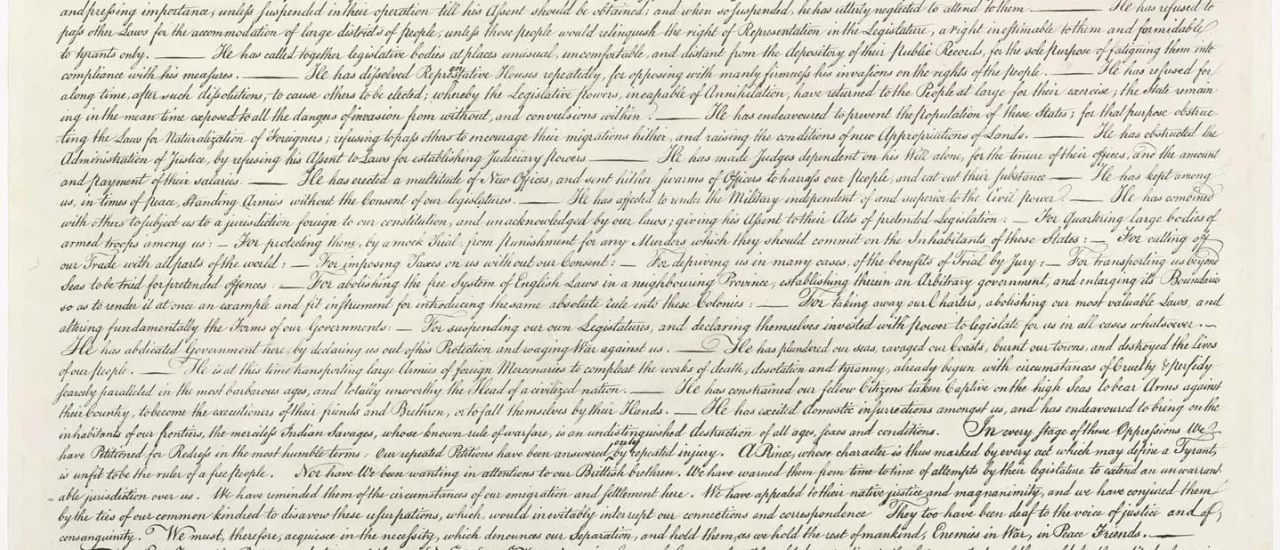 and pressing importance, unless suspended in their operation till his Assent should be obtained; and when so suspended, he has utterly neglected to attend to them. —— He has refused to
pass other Laws for the accommodation of large districts of people, unless those people would relinquish the right of Representation in the Legislature, a right inestimable to them and formidable
to tyrants only. —— He has called together legislative bodies at places unusual, uncomfortable, and distant from the depository of their Public Records, for the sole purpose of fatiguing them into
compliance with his measures. —— He has dissolved Representative Houses repeatedly, for opposing with manly firmness his invasions on the rights of the people. —— He has refused for
a long time, after such dissolutions, to cause others to be elected; whereby the Legislative powers, incapable of Annihilation, have returned to the People at large for their exercise; the State remain-
ing in the mean time exposed to all the dangers of invasion from without, and convulsions within. —— He has endeavoured to prevent the population of these States; for that purpose obstruc-
ting the Laws for Naturalization of Foreigners; refusing to pass others to encourage their migrations hither, and raising the conditions of new Appropriations of Lands. —— He has obstructed the
Administration of Justice, by refusing his Assent to Laws for establishing Judiciary powers —— He has made Judges dependent on his Will alone, for the tenure of their offices, and the amount
and payment of their salaries. —— He has erected a multitude of New Offices, and sent hither swarms of Officers to harrass our people, and eat out their substance —— He has kept among
us, in times of peace, Standing Armies without the Consent of our legislatures. —— He has affected to render the Military independent of and superior to the Civil power. —— He has combined
with others to subject us to a jurisdiction foreign to our constitution, and unacknowledged by our laws; giving his Assent to their Acts of pretended Legislation: — For Quartering large bodies of
armed troops among us: — For protecting them, by a mock Trial, from punishment for any Murders which they should commit on the Inhabitants of these States: — For cutting off
our Trade with all parts of the world: — For imposing Taxes on us without our Consent: — For depriving us in many cases, of the benefits of Trial by Jury: — For transporting us beyond
Seas to be tried for pretended offences — For abolishing the free System of English Laws in a neighbouring Province, establishing therein an Arbitrary government, and enlarging its Boundaries
so as to render it at once an example and fit instrument for introducing the same absolute rule into these Colonies: — For taking away our Charters, abolishing our most valuable Laws, and
altering fundamentally the Forms of our Governments: — For suspending our own Legislatures, and declaring themselves invested with power to legislate for us in all cases whatsoever. —
He has abdicated Government here, by declaring us out of his Protection and waging War against us. —— He has plundered our seas, ravaged our Coasts, burnt our towns, and destroyed the Lives
of our people. — He is at this time transporting large Armies of foreign Mercenaries to compleat the works of death, desolation and tyranny, already begun with circumstances of Cruelty & perfidy
scarcely paralleled in the most barbarous ages, and totally unworthy the Head of a civilized nation. — He has constrained our fellow Citizens taken Captive on the high Seas to bear Arms against
their Country, to become the executioners of their friends and Brethren, or to fall themselves by their Hands. — He has excited domestic insurrections amongst us, and has endeavoured to bring on the
inhabitants of our frontiers, the merciless Indian Savages, whose known rule of warfare, is an undistinguished destruction of all ages, sexes and conditions. In every stage of these Oppressions We
have Petitioned for Redress in the most humble terms: Our repeated Petitions have been answered only by repeated injury. A Prince, whose character is thus marked by every act which may define a Tyrant,
is unfit to be the ruler of a free people. Nor have We been wanting in attentions to our Brittish brethren. We have warned them from time to time of attempts by their legislature to extend an unwarrant-
able jurisdiction over us. We have reminded them of the circumstances of our emigration and settlement here. We have appealed to their native justice and magnanimity, and we have conjured them
by the ties of our common kindred to disavow these usurpations, which, would inevitably interrupt our connections and correspondence They too have been deaf to the voice of justice and of
consanguinity. We must, therefore, acquiesce in the necessity, which denounces our Separation, and hold them, as we hold the rest of mankind, Enemies in War, in Peace Friends. —